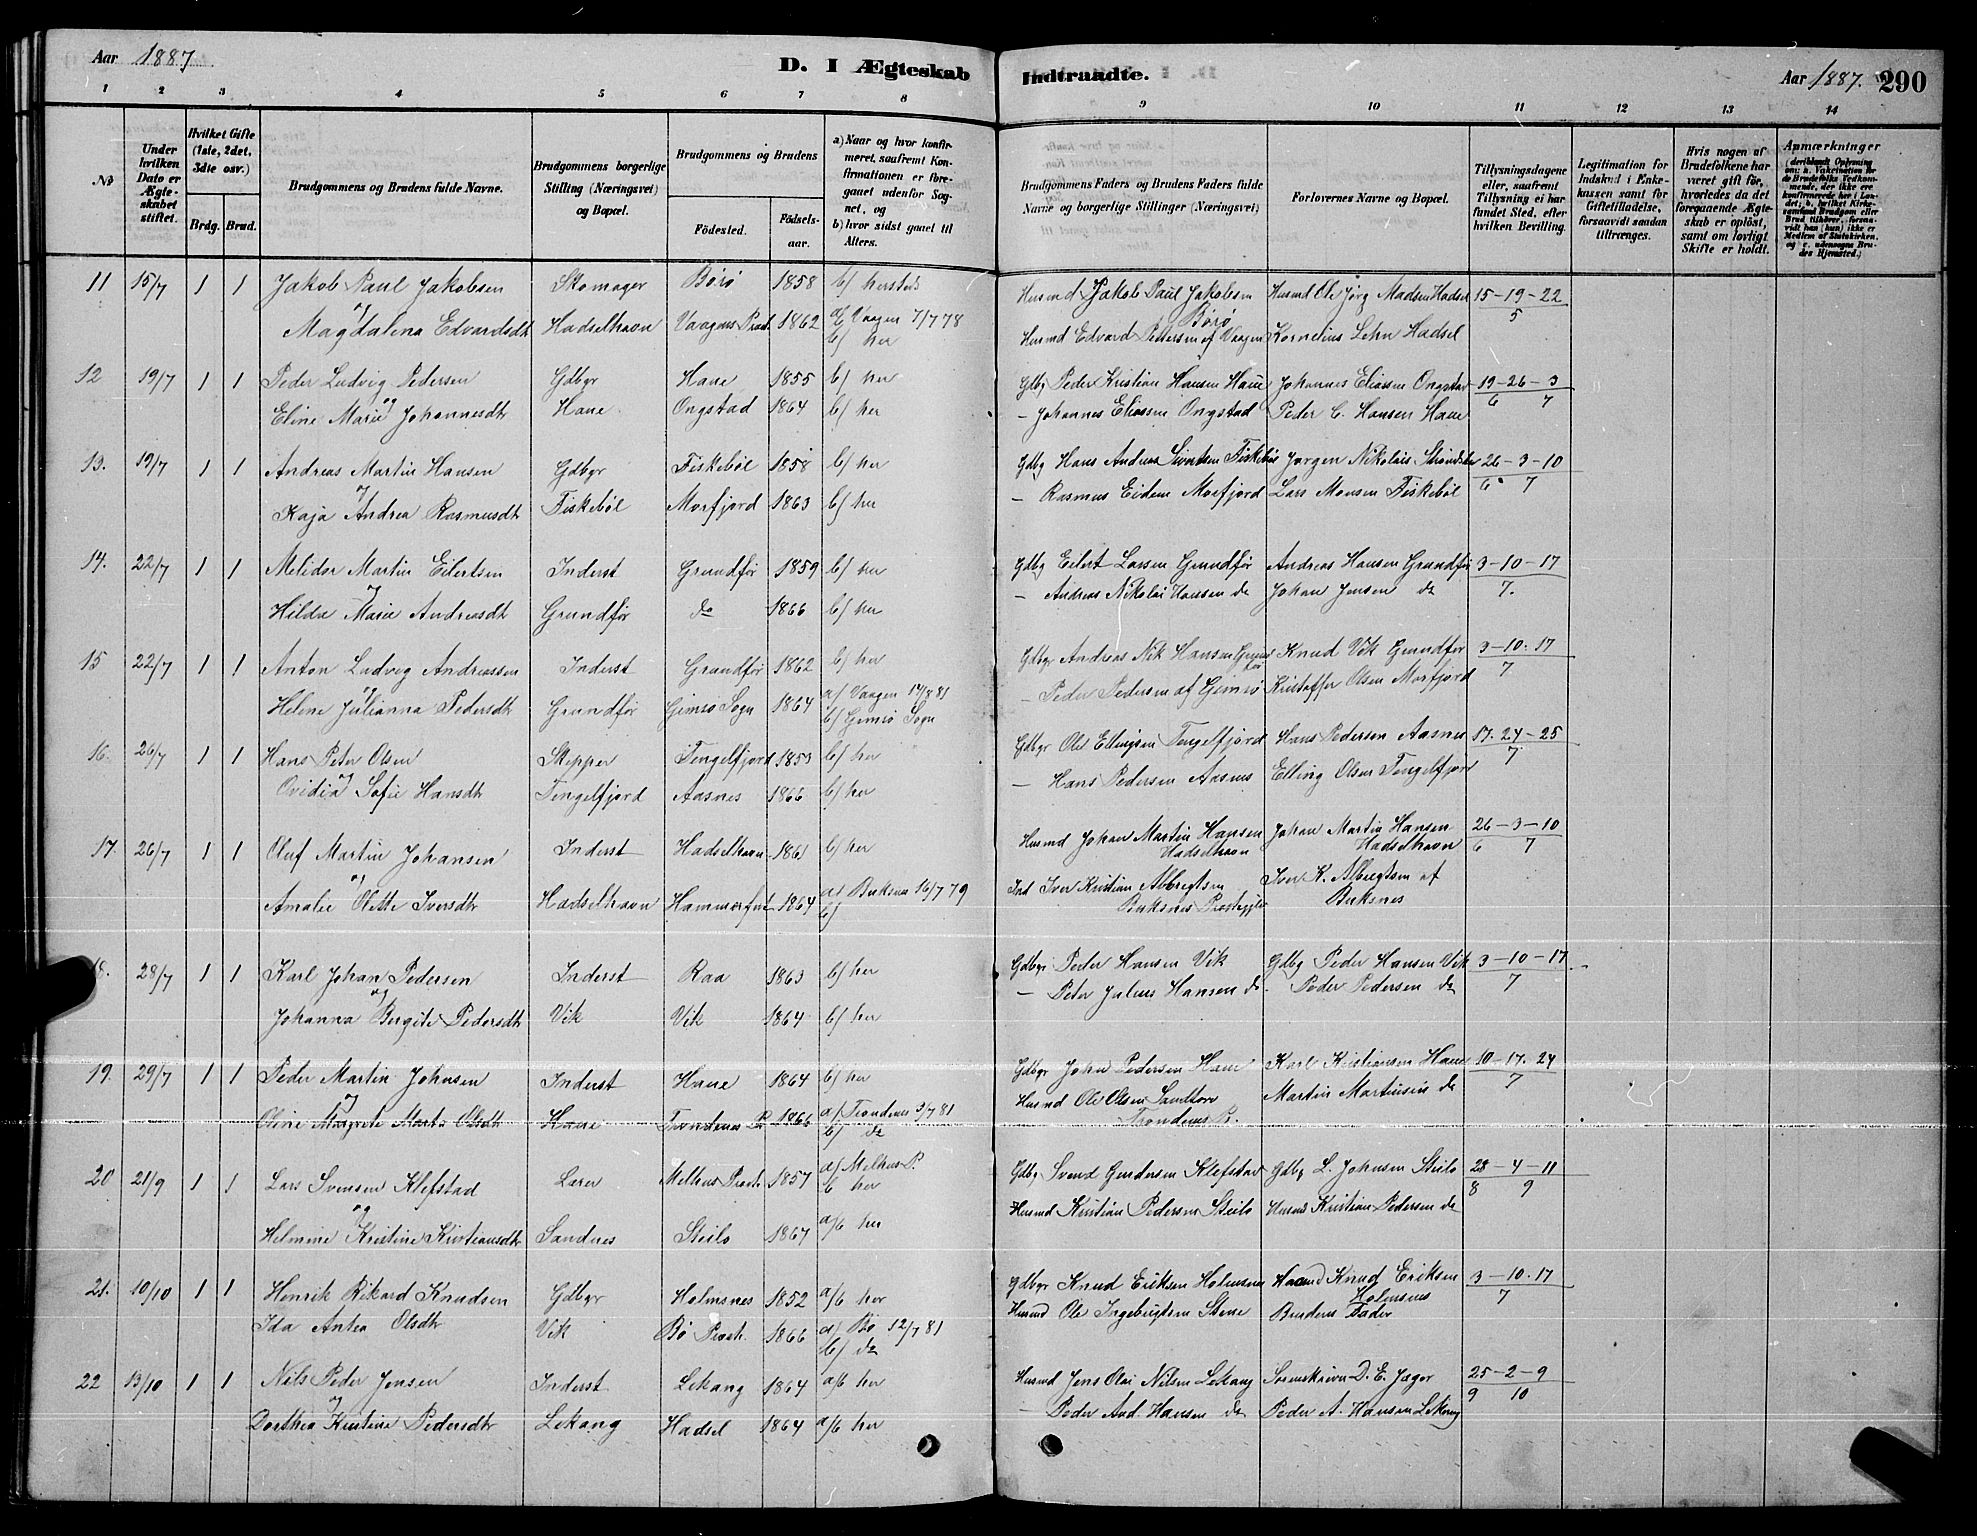 Aar 1887.
D. I Ægteskab Indtraadte.
Aar 1887. 290
1 2 3 4 5 6 7 8 9 10 11 12 13 14
No
Under hvilken Dato er Ægteskabet stiftet.
Hvilket Gifte (1ste, 2det, 3die osv.)
Brdg. Brud.
Brudgommens og Brudens fulde Navne.
Brudgommens borgerlige Stilling (Næringsvei) og Bopæl.
Brudgommens og Brudens
Födested. Födsels-aar.
a) Naar og hvor konfirmeret, saafremt Konfirmationen er foregaaet udenfor Sognet, og
b) hvor sidst gaaet til Alters.
Brudgommens Faders og Brudens Faders fulde Navne og borgerlige Stillinger (Næringsvei)
Forlovernes Navne og Bopæl.
Tillysningsdagene eller, saafremt Tillysning ei har fundet Sted, efter hvilken Bevilling.
Legitimation for Indskud i Enkekassen samt for Giftetilladelse, forsaavidt saadan tiltrænges.
Hvis nogen af Brudefolkene har været gift för, hvorledes da det foregaaende Ægteskab er oplöst, samt om lovligt Skifte er holdt.
Anmærkninger
11 15/7 1 1 Jakob Paul Jakobsen Skomager Börö 1858 b/ hersteds Husmd Jakob Paul Jakobsen Börö Husmd Ole Jörg Madsen Hadsel 15-19-22 / 5
og
Magdalena Edvardsdt Hadselhavn Vaagens Præst. 1862 a/ Vaagen 7/7 78 b/ her Husmd Edvard Pettersen af Vaagen Kornelius Lehn Hadsel
12 19/7 1 1 Peder Ludvig Pedersen Gdbgr Haue 1855 b/ her Gdbg Peder Kristian Hansen Haue Johannes Eliassen Ongstad 19-26-3 / 6 7
og
Eline Marie Johannesdt Haue Ongstad 1864 b/ her - Johannes Eliassen Ongstad Peder C. Hansen Haue
13. 19/7 1 1 Andreas Martin Hansen Gdbgr Fiskeböl 1858 b/ her Gdbg Hans Andreas Sivertsen Fiskeböl Jörgen Nikolais 26-3-10 / 6 7
og
Kaja Andrea Rasmusdt Fiskeböl Morfjord 1863 b/ her - Rasmus Eidem Morfjord Lars Monsen Fiskeböl
14. 22/7 1 1 Melidor Martin Eilertsen Inderst Grundför 1859 b/ her Gdbg Eilert Larsen Grundför Andreas Hansen Grundför 3-10-17 / 7.
og
Hilda Marie Andreasdt Grundför do 1866 b/ her - Andreas Nikolai Hansen do Johan Jensen do
15 22/7 1 1 Anton Ludvig Andreassen Inderst Grundför 1862 b/ her Gdbgr Andreas Nik Hansen Grundför Knud Vik Grundför 3-10.17 / 7
og
Helene Julianna Pedersdt Grundför Gimsö Sogn 1864 a/ Vaagen 14/8 81 b/ Gimsö Sogn - Peder Pedersen af Gimsö Kristoffer Olsen Morfjord
16. 26/7 1 1 Hans Peter Olsen Skipper Tengelfjord 1853 b/ her Gdbgr Ole Ellingsen Tengelfjord Hans Pedersen Aasnes 17.24-25 / 7.
og
Ovidia Sofie Hansdt Tengelfjord Aasnes 1866 b/ her - Hans Pedersen Aasnes Elling Olsen Tengelfjord
17. 26/7 1 1 Oluf Martin Johansen Inderst Hadselhavn 1861 b/ her Husmd Johan Martin Hansen Hadselhavn Johan Martin Hansen Hadselhavn 26-3-10 / 6 7
og
Amalie Olette Iversdt Hadselhavn Hammerfest 1864 a/ Buksnes 16/7 79 b/ Ind Iver Kristian Albregtsen Buksnes Præstegjeld Iver K. Albregtsen af Buksnes
18. 28/7 1 1 Karl Johan Pedersen Inderst Raa 1863 b/ her Gdbgr Peter Hansen Vik Gdbg Peder Hansen Vik 3-10-17 / 7
og
Johanna Bergite Pedersdt Vik Vik 1864 b/ her - Peter Julius Hansen do. Peder Pedersen do
19. 29/7 1 1 Peder Martin Johnsen Inderst Haue 1864 b/ her Gdbgr John Pedersen Haue Karl Kristiansen Haue 10-17.24 / 7
og
Oline Margrete Marta Olsdt Haue Trondenes P. 1866 a/ Trondenes 3/7 81 b/ do Husmd Ole Olsen Sandtorv Trondenes P. Martin Martinsen do
20 21/9 1 1 Lars Svensen Klefstad Lærer Melhus Præst. 1857 a/ Melhus P. b her Gdbg Svend Gundersen Klefstad Gdbg L. Johnsen Steilo 28-4-11 / 8 9
og
Helmine Kristine Kristiansdt Sandnes Steilo 1867 a/b her Husmd Kristian Pedersen Steilo Husmd Kristian Pedersen do
21. 10/10 1 1 Henrik Rikard Knudsen Gdbgr Holmsnes 1852 a/b her Gdbgr Knud Eriksen Holmsnes Knud Eriksen Holmsnes 3-10.17 / 7
Ida Antea Olsdt Vik Bö Præst. 1866 a/ Bö 12/7 81 b/ do Husmd Ole Ingebrigtsen Stene Brudens Fader
22 13/10 1 1 Nils Peder Jensen Inderst Lekang 1864 a/b her Husmd Jens Olai Nilsen Lekang Sorenskriver D. E. Jæger 25-2-9 / 9 10
og
Dorthea Kristine Pedersdt Lekang Hadsel 1864 a/b her - Peder And. Hansen do Peder A. Hansen Lekang